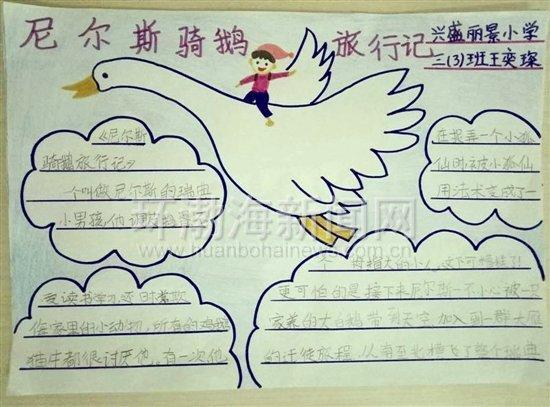 尼尔斯骑鹅旅行记
兴盛丽景小学
三(3)班王奕琛
《尼尔斯
骑鹅旅行记》
一个叫做尼尔斯的瑞典
小男孩，他调皮
爱读书学习，还时常欺
侮家里的小动物，所有的鸡鹅
猫牛都很讨厌他。有一次他
在捉弄一个小狐
仙时被小狐仙
用法术变成了一
个拇指大的小人，这下可惨了！
更可怕的是接下来尼尔斯一不小心被一只
家养的大白鹅带到天空加入到一群大雁
的迁徙旅程，从南至北横飞了整个瑞典
环渤海新闻网
www.huanbohainews.com.cn